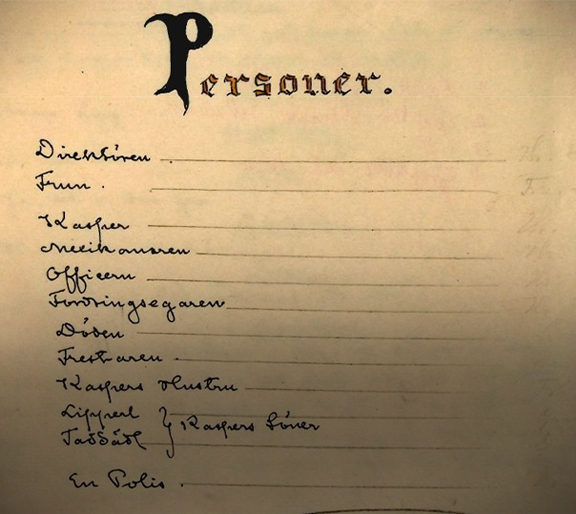 Personer.
Direktören
Frun.
Kasper
Mexikanaren
Officern
Fordringsegaren
Döden
Frestaren
Kaspers Hustru
Lipperl
Kaspers Söner
En Polis